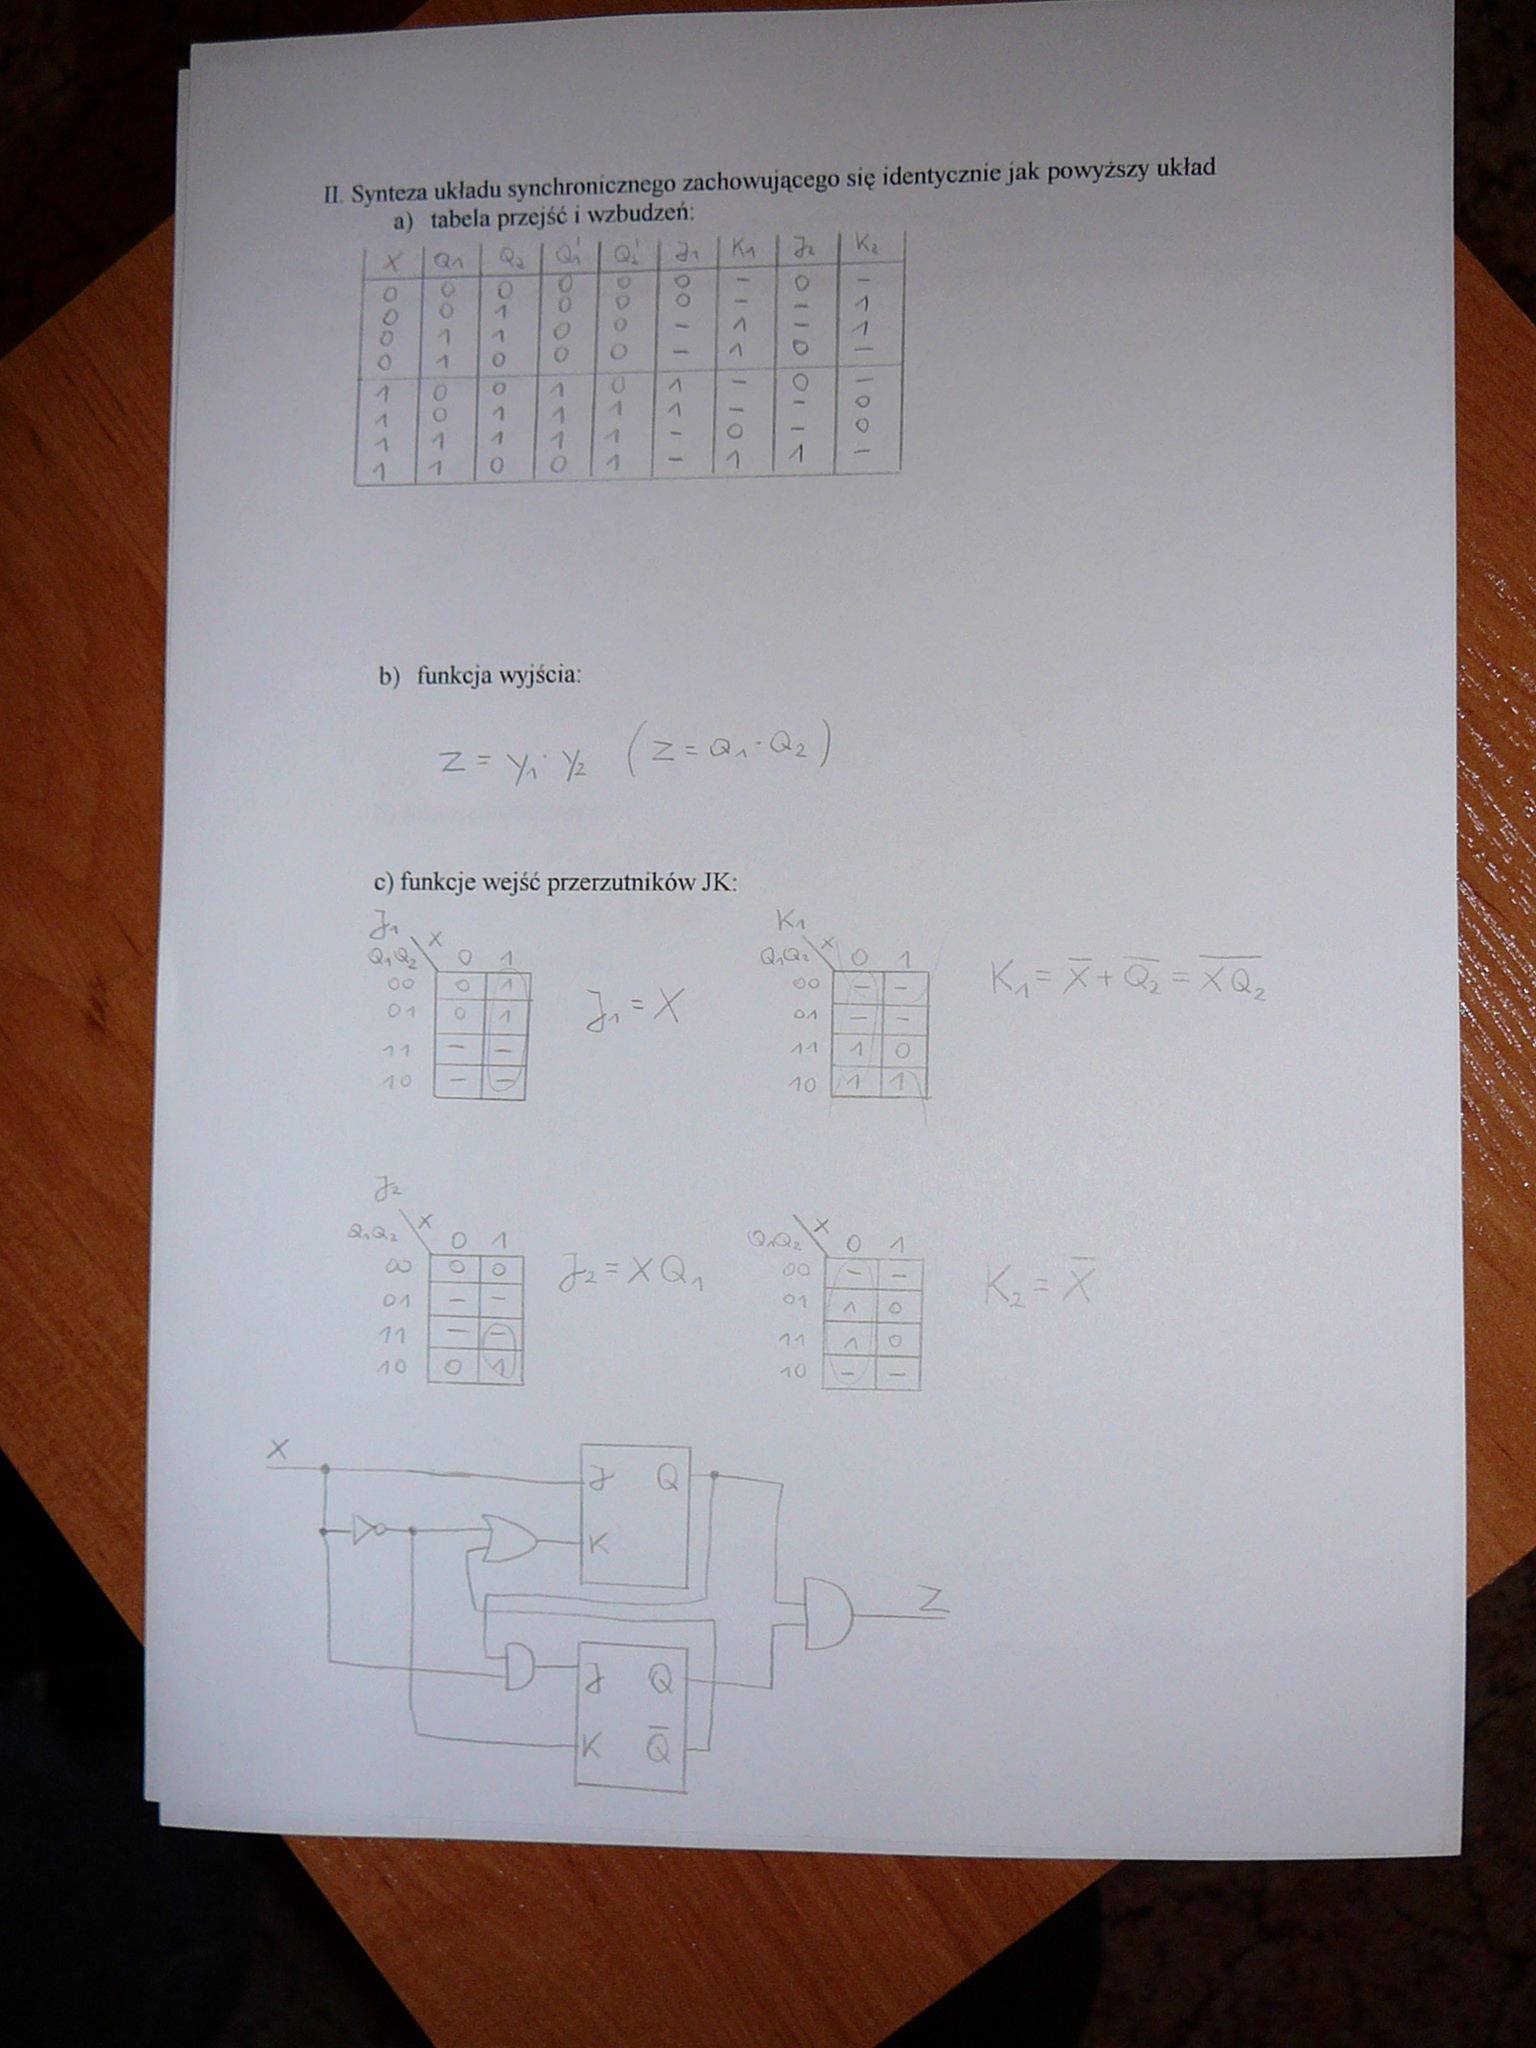 II. Synteza układu synchronicznego zachowującego się identycznie jak powyższy układ
a) tabela przejść i wzbudzeń:
X Q1 Q2 Q1' Q2' J1 K1 J2 K2
0 0 0 0 0 0 - 0 -
0 0 1 0 0 0 - - 1
0 1 1 0 0 - 1 - 1
0 1 0 0 0 - 1 0 -
1 0 0 1 0 1 - 0 -
1 0 1 1 1 1 - - 0
1 1 1 1 1 - 0 - 0
1 1 0 0 1 - 1 1 -
b) funkcja wyjścia:
Z = y1 · y2 (Z = Q1 · Q2)
c) funkcje wejść przerzutników JK:
J1
X
Q1Q2 0 1
00 0 1
01 0 1
11 - -
10 - -
J1 = X
K1
X
Q1Q2 0 1
00 - -
01 - -
11 1 0
10 1 1
K1 = X̅ + Q̅2 = X̅Q̅2̅
J2
X
Q1Q2 0 1
00 0 0
01 - -
11 - -
10 0 1
J2 = X Q1
X
Q1Q2 0 1
00 - -
01 1 0
11 1 0
10 - -
K2 = X̅
X
J Q
K
Z
J Q
K Q̅